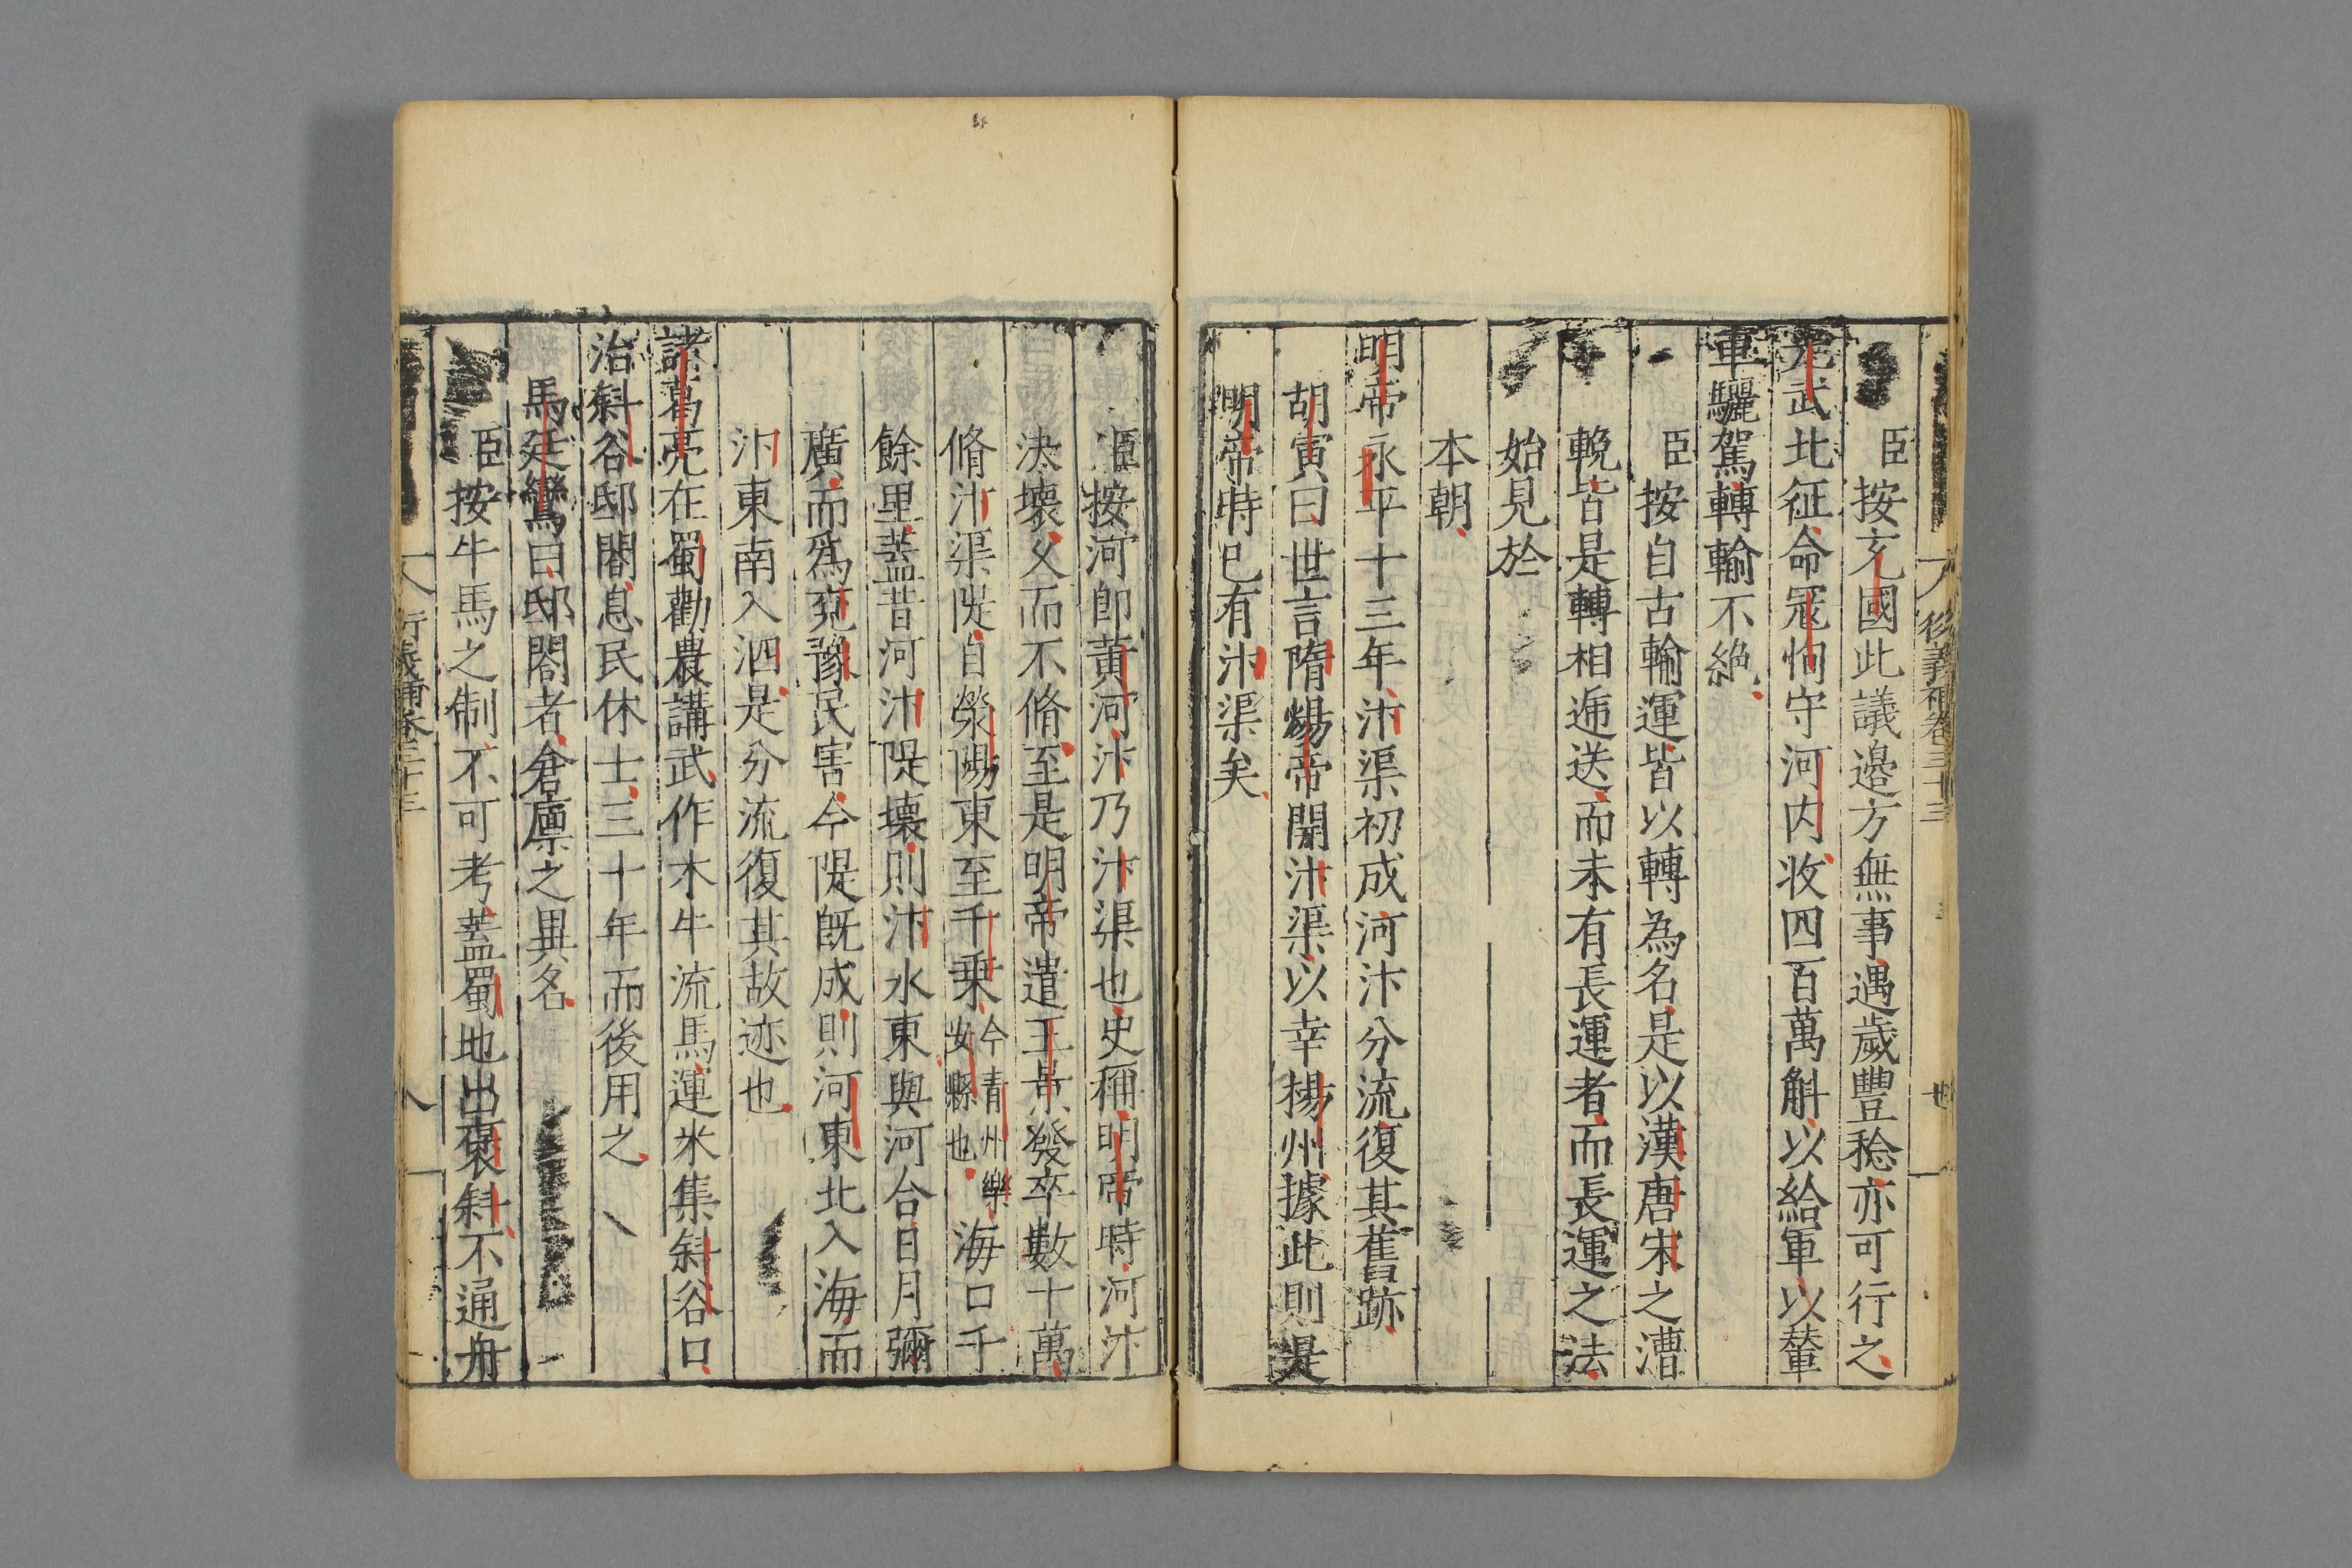 後義補卷三十三
臣按充國此議邊方無事遇歲豐稔亦可行之
光武北征命冦恂守河内收四百萬斛以給軍以輦
車驪駕轉輸不絶
臣按自古輸運皆以轉為名是以漢唐宋之漕
輓皆是轉相逓送而未有長運者而長運之法
始見於
本朝
明帝永平十三年汴渠初成河汴分流復其舊跡
胡寅曰世言隋煬帝開汴渠以幸揚州據此則是
明帝時已有汴渠矣
臣按河即黄河汴乃汴渠也史稱明帝時河汴
決壊久而不脩至是明帝遣王景發卒數十萬
脩汴渠隄自滎陽東至千乗今青州樂安縣也海口千
餘里蓋昔河汴隄壊則汴水東與河合日月彌
廣而爲兖豫民害今隄既成則河東北入海而
汴東南入泗是分流復其故迹也
諸葛亮在蜀勸農講武作木牛流馬運米集斜谷口
治斜谷邸閣息民休士三十年而後用之
馬廷鸞曰邸閣者倉廪之異名
臣按牛馬之制不可考蓋蜀地出褒斜不通舟
衍義補卷三十三
八